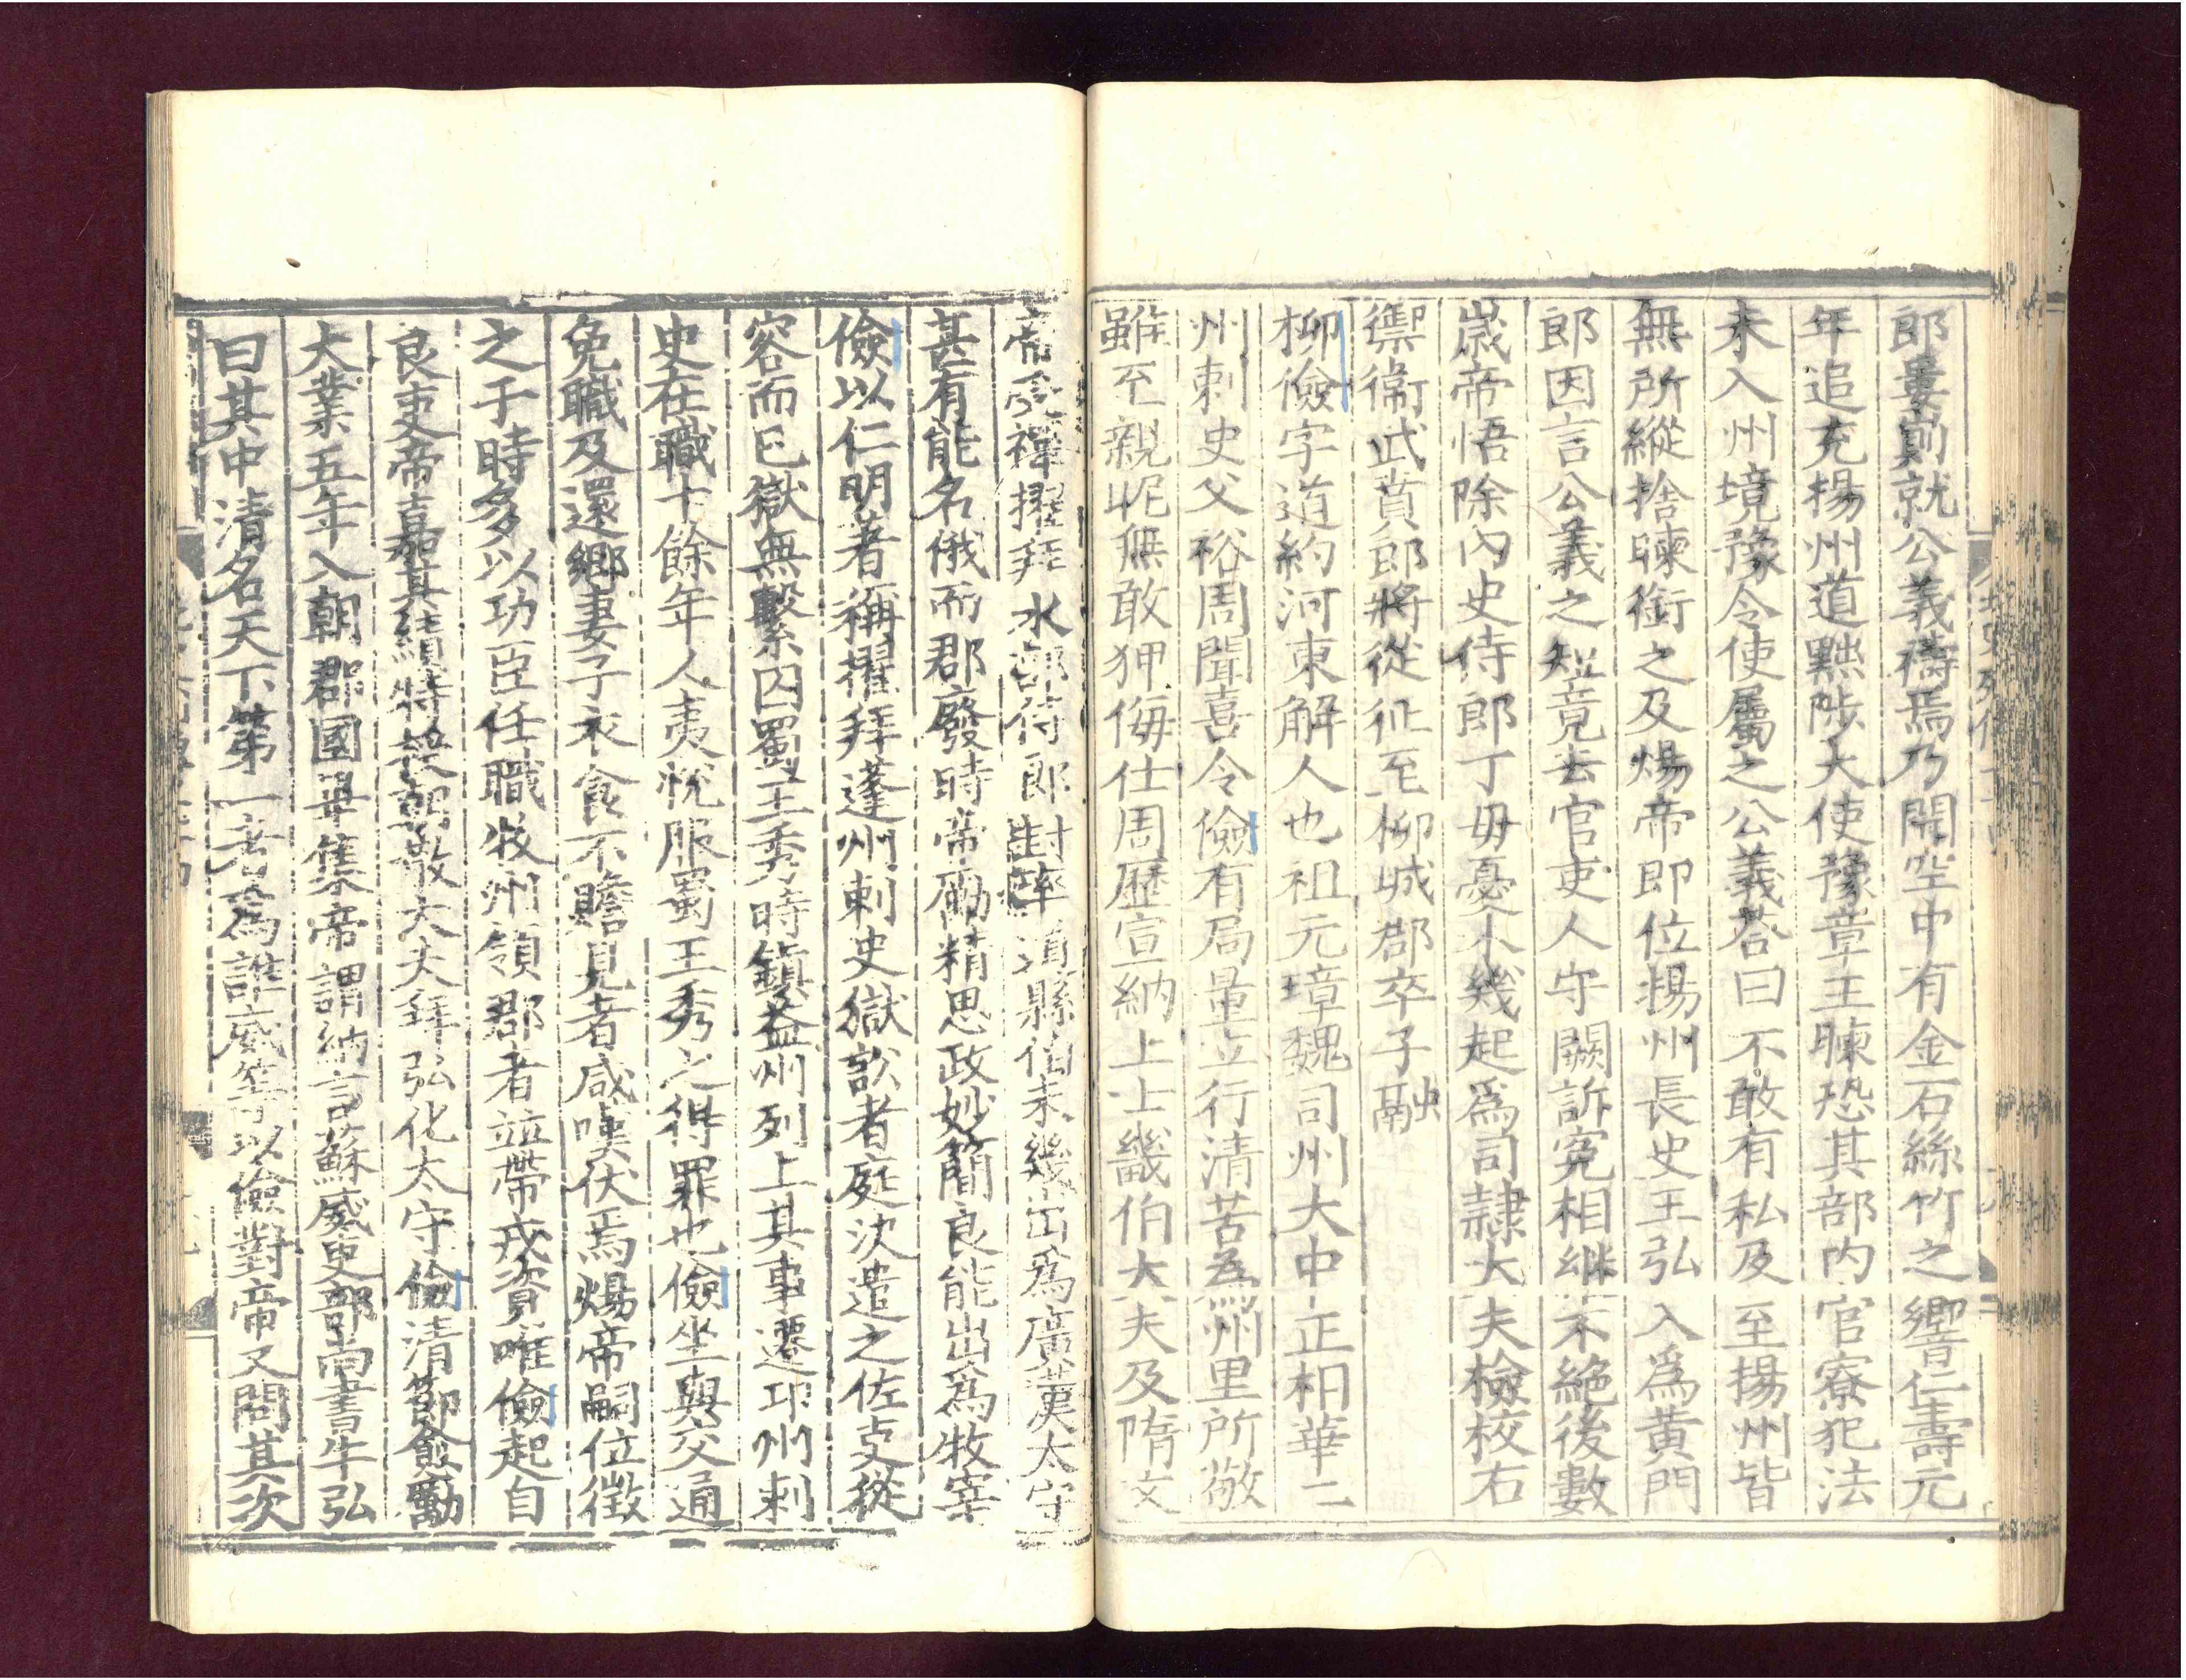 郎婁崱就公義禱焉乃聞空中有金石絲竹之響仁壽元
年追充揚州道黜陟大使豫章王暕恐其部內官寮犯法
未入州境豫令使屬之公義荅曰不敢有私及至揚州皆
無所縱捨暕銜之及煬帝即位揚州長史王弘入爲黃門
郎因言公義之短竟去官吏人守闕訴冤相継不絕後數
歲帝悟除內史侍郎丁毋憂未幾起爲司隷大夫檢校右
禦衛武賁郎將從征至柳城郡卒子融
柳儉字道約河東解人也祖元璋魏司州大中正相華二
州刺史父裕周聞喜令儉有局量立行清苦爲州里所敬
雖至親昵無敢狎侮仕周歷宣納上士畿伯大夫及隋文
帝受禪擢拜水部侍郎封率道縣伯未幾出爲廣漢太守
甚有能名俄而郡廢時帝勵精思政妙簡良能出爲牧宰
儉以仁明著稱擢拜蓬州刺史獄訟者庭決遣之佐吏從
容而已獄無繫囚蜀王秀時鎮益州列上其事遷邛州刺
史在職十餘年人夷悅服蜀王秀之得罪也儉坐與交通
免職及還鄉妻子衣食不贍見者咸嘆伏焉煬帝嗣位徵
之于時多以功臣任職牧州領郡者竝帶戎資唯儉起自
良吏帝嘉其績特授朝散大夫拜弘化太守儉清節愈勵
大業五年入朝郡國畢集帝謂納言蘇威吏部尚書牛弘
曰其中清名天下第一者爲誰威等以儉對帝又問其次